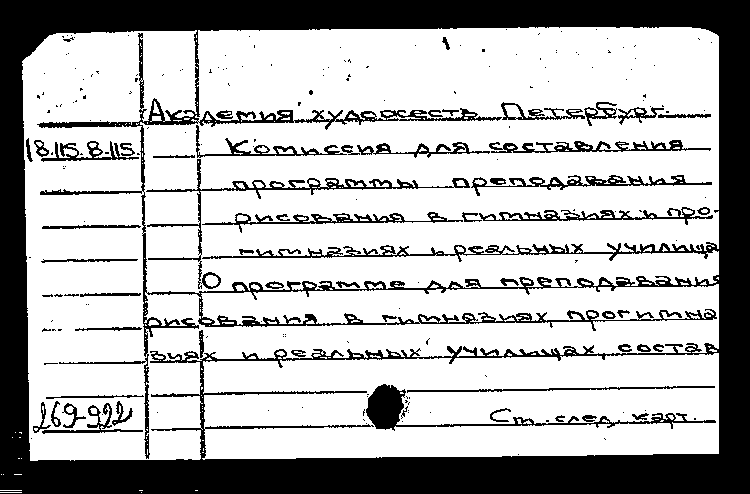 Академия художеств Петербург.
18.115.8.115. Комиссия для составления
программы преподавания
рисования в гимназиях и про-
гимназиях и реальных училища
О программе для преподавания
рисования в гимназиях, прогимна
зиях и реальных училищах, состав
269-992 См. след. карт.